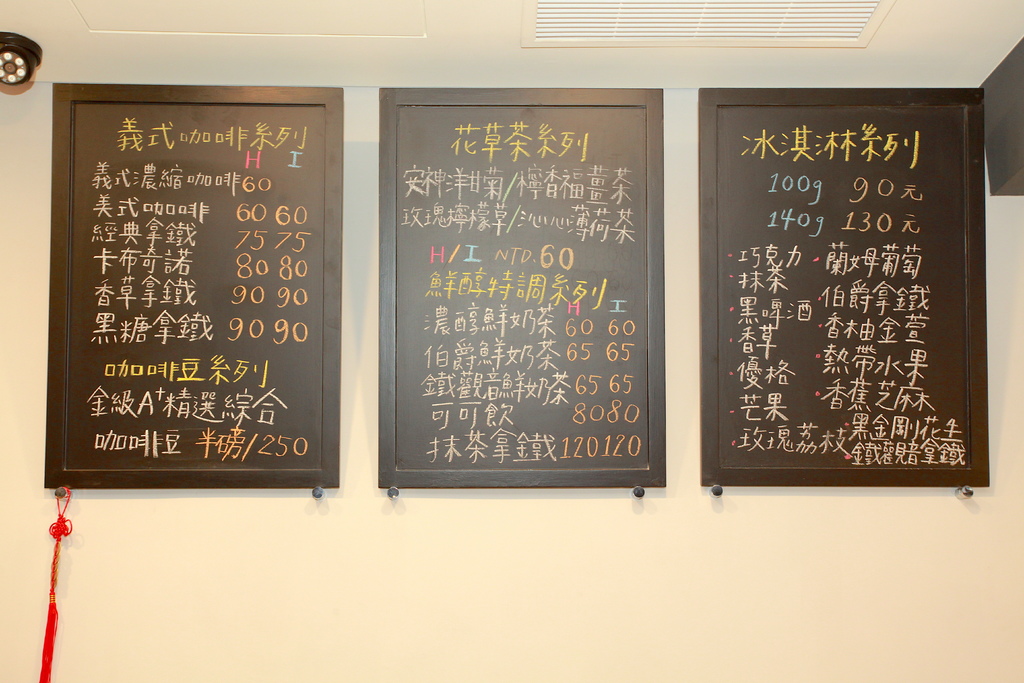 義式咖啡系列
H I
義式濃縮咖啡 60
美式咖啡 60 60
經典拿鐵 75 75
卡布奇諾 80 80
香草拿鐵 90 90
黑糖拿鐵 90 90
咖啡豆系列
金級A+精選綜合
咖啡豆 半磅/250
花草茶系列
安神洋甘菊/檸香福薑茶
玫瑰檸檬草/沁心薄荷茶
H/I NTD.60
鮮醇特調系列
H I
濃醇鮮奶茶 60 60
伯爵鮮奶茶 65 65
鐵觀音鮮奶茶 65 65
可可飲 80 80
抹茶拿鐵 120 120
冰淇淋系列
100g 90元
140g 130元
·巧克力
·抹茶
·黑啤酒
·香草
·優格
·芒果
·玫瑰荔枝
·蘭姆葡萄
·伯爵拿鐵
·香柚金萱
·熱帶水果
·香蕉芝麻
·黑金剛花生
·鐵觀音拿鐵